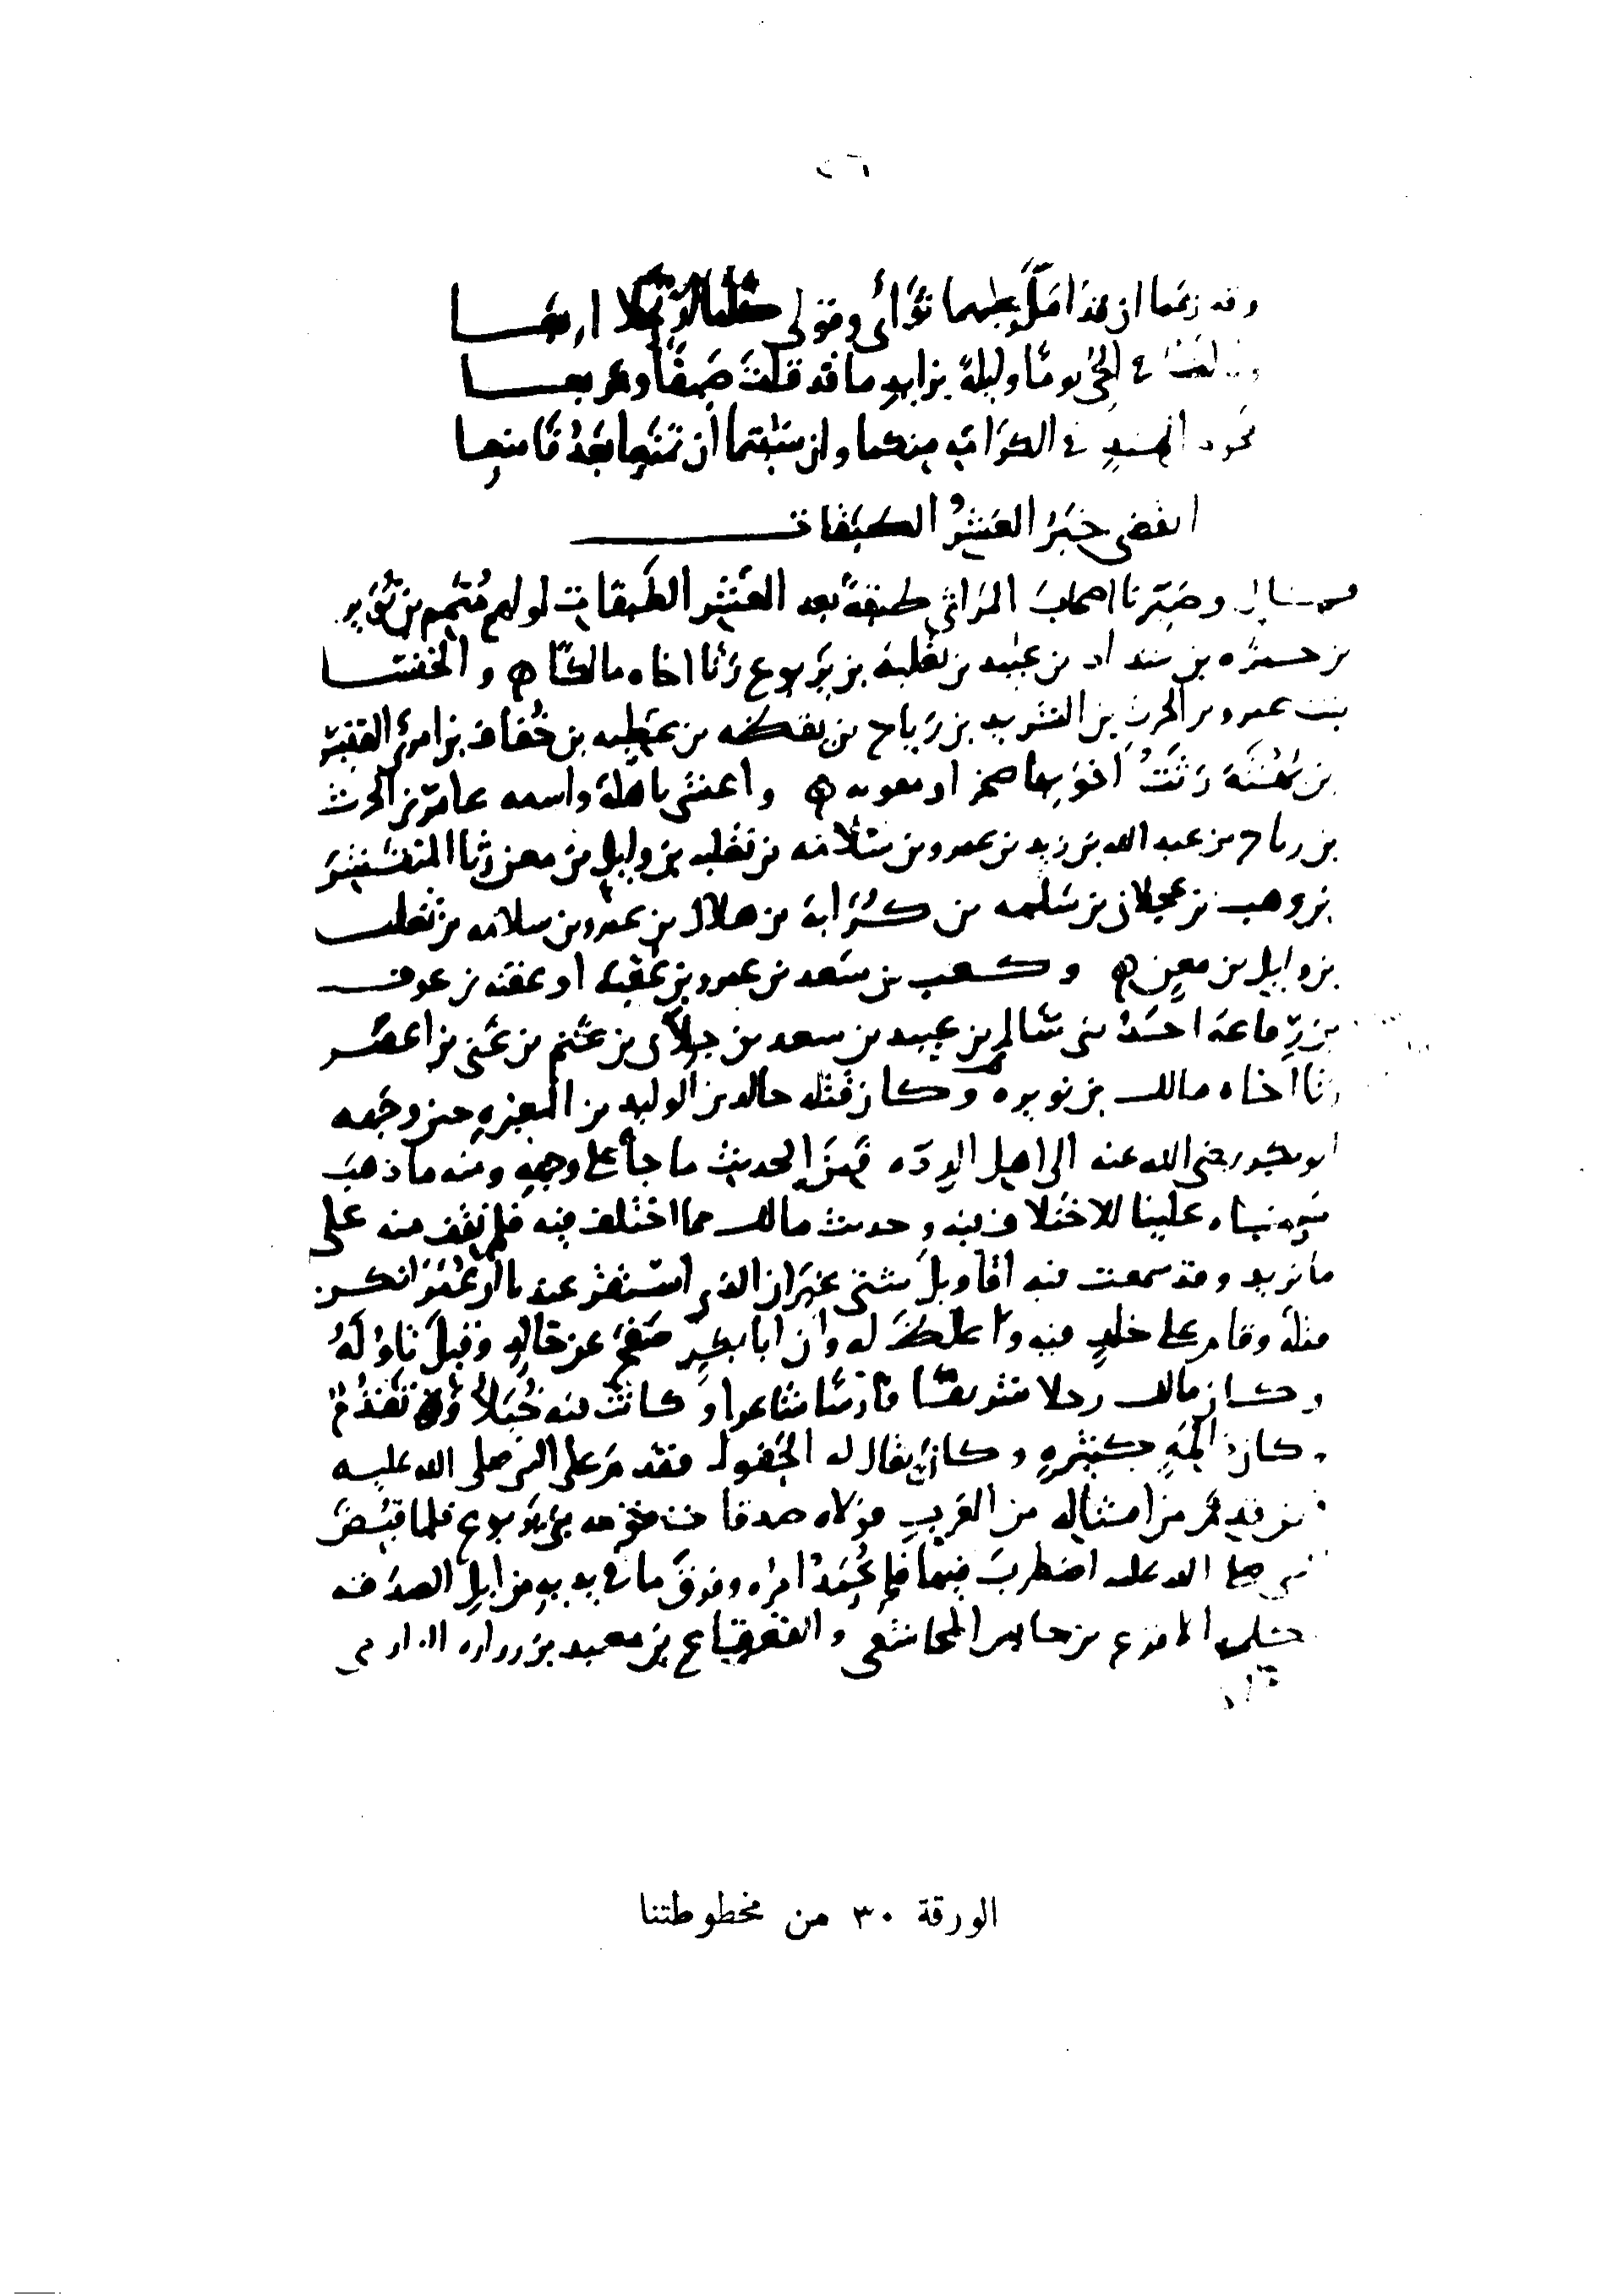 ٢٦
وقد زعما ان قد امل عليهما ثوائى وقولى
فى الحى يوما وليلة بزابد ما قد قلت صيفا ومربعا
فى الكرائم منكما وان شئتما ان تمنعا بعد فامنعا
انقضى خبر العشر الطبقات
وصيرنا اصحاب المراثى طبقة بعد العشر الطبقات اولهم متمم بن نويره
بن حمزه بن شداد بن عبيد بن ثعلبة بن يربوع رثا اخاه مالكا ه والخنسا
بنت عمرو بن الحرث بن الشريد بن رياح بن يقظه بن عصيه بن خفاف بن امرئ القيس
بن بهثة رثت اخويها صخرا ومعويه ه واعشى باهلة واسمه عامر بن الحرث
بن رياح بن عبد الله بن زيد بن عمرو بن سلامه بن ثعلبه بن وايل بن معن رثا المنتشر
بن وهب بن عجلان بن سلمه بن كراثة بن هلال بن عمرو بن سلامه بن ثعلب
بن وايل بن معن ه وكعب بن سعد بن عمرو بن عقبة او علقمه بن عوف
بن رفاعة احد بنى سالم بن عبيد بن سعد بن جلان بن غنم بن غنى بن اعصر
رثا اخاه مالك بن نويره وكان قتله خالد بن الوليد بن المغيره حين وجهه
ابو بكر رضى الله عنه الى اهل الرده فمن الحديث ما جا على وجهه ومنه ما ذهب
علينا للاختلاف فيه وحديث مالك مما اختلف فيه فلم نقف منه على
ما نريد وقد سمعت فيه اقاويل شتى غير ان الذى استقر عندنا ان عمر انكر
قتله وقام على خلد فيه واغلظ له وان ابا بكر صفح عن خالد وقبل تاوله
وكان مالك رجلا شريفا فارسا شاعرا وكانت فيه خيلا وتقدم
وكان ذا لمة كبيره وكان يقال له الجفول وقدم على النبى صلى الله عليه
فيمن قدم من امثاله من العرب فولاه صدقات قومه بنى يربوع فلما قبض
النبى صلى الله عليه اضطرب فيها فلم يحمد امره وفرق ما فى يديه من ابل الصدقه
الاقرع بن حابس المجاشعى والقعقاع بن معبد بن زراره الدارمى
الورقة ٣٠ من مخطوطتنا